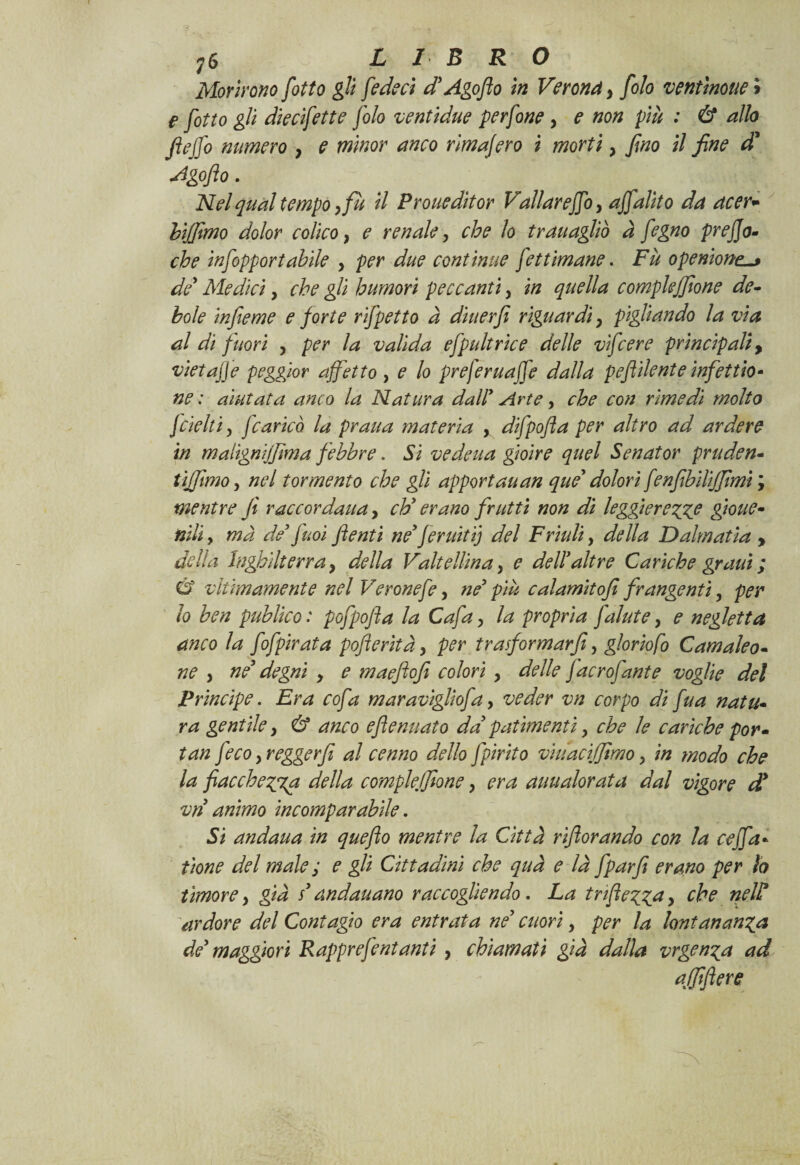 76 LIBRO
Morirono ſotto gli ſedeci d'Agoſto in Verona, ſolo ventinoue;
e ſotto gli dieciſette ſolo ventidue perſone, e non più: & allo
ſteſſo numero, e minor anco rimaſero i morti, ſino il fine d'
Agoſto.
Nel qual tempo, fù il Proueditor Vallareſſo, aſſalito da acer-
biſſimo dolor colico, e renale, che lo trauagliò à ſegno preſſo-
che inſopportabile, per due continue ſettimane. Fù openione
de' Medici, che gli humori peccanti, in quella compleſſione de-
bole inſieme e forte riſpetto à diuerſi riguardi, pigliando la via
al di fuori, per la valida eſpultrice delle viſcere principali,
vietaſſe peggior affetto, e lo preſeruaſſe dalla peſtilente infettio-
ne: aiutata anco la Natura dall' Arte, che con rimedi molto
ſcielti, ſcaricò la praua materia, diſpoſta per altro ad ardere
in maligniſſima febbre. Si vedeua gioire quel Senator pruden-
tiſſimo, nel tormento che gli apportauan que' dolori ſenſibiliſſimi;
mentre ſi raccordaua, ch' erano frutti non di leggierezze gioue-
nili, mà de' ſuoi ſtenti ne' ſeruitij del Friuli, della Dalmatia,
della Inghilterra, della Valtellina, e dell'altre Cariche graui;
& vltimamente nel Veroneſe, ne' più calamitoſi frangenti, per
lo ben publico: poſpoſta la Caſa, la propria ſalute, e negletta
anco la ſoſpirata poſterità, per trasformarſi, glorioſo Camaleo-
ne, ne' degni, e maeſtoſi colori, delle ſacroſante voglie del
Principe. Era coſa maraviglioſa, veder vn corpo di ſua natu-
ra gentile, & anco eſtenuato da' patimenti, che le cariche por-
tan ſeco, reggerſi al cenno dello ſpirito viuaciſſimo, in modo che
la fiacchezza della compleſſione, era auualorata dal vigore d'
vn' animo incomparabile.
Si andaua in queſto mentre la Città riſtorando con la ceſſa-
tione del male; e gli Cittadini che quà e là ſparſi erano per lo
timore, già s'andauano raccogliendo. La triſtezza, che nell'
ardore del Contagio era entrata ne' cuori, per la lontananza
de' maggiori Rappreſentanti, chiamati già dalla vrgenza ad
aſſiſtere